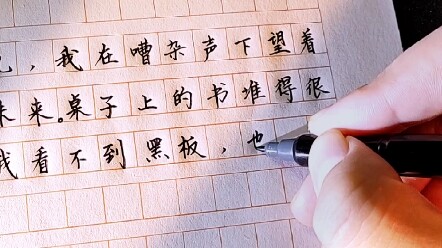 ，我在嘈杂声下望着
未来。桌子上的书堆得很
我看不到黑板，也